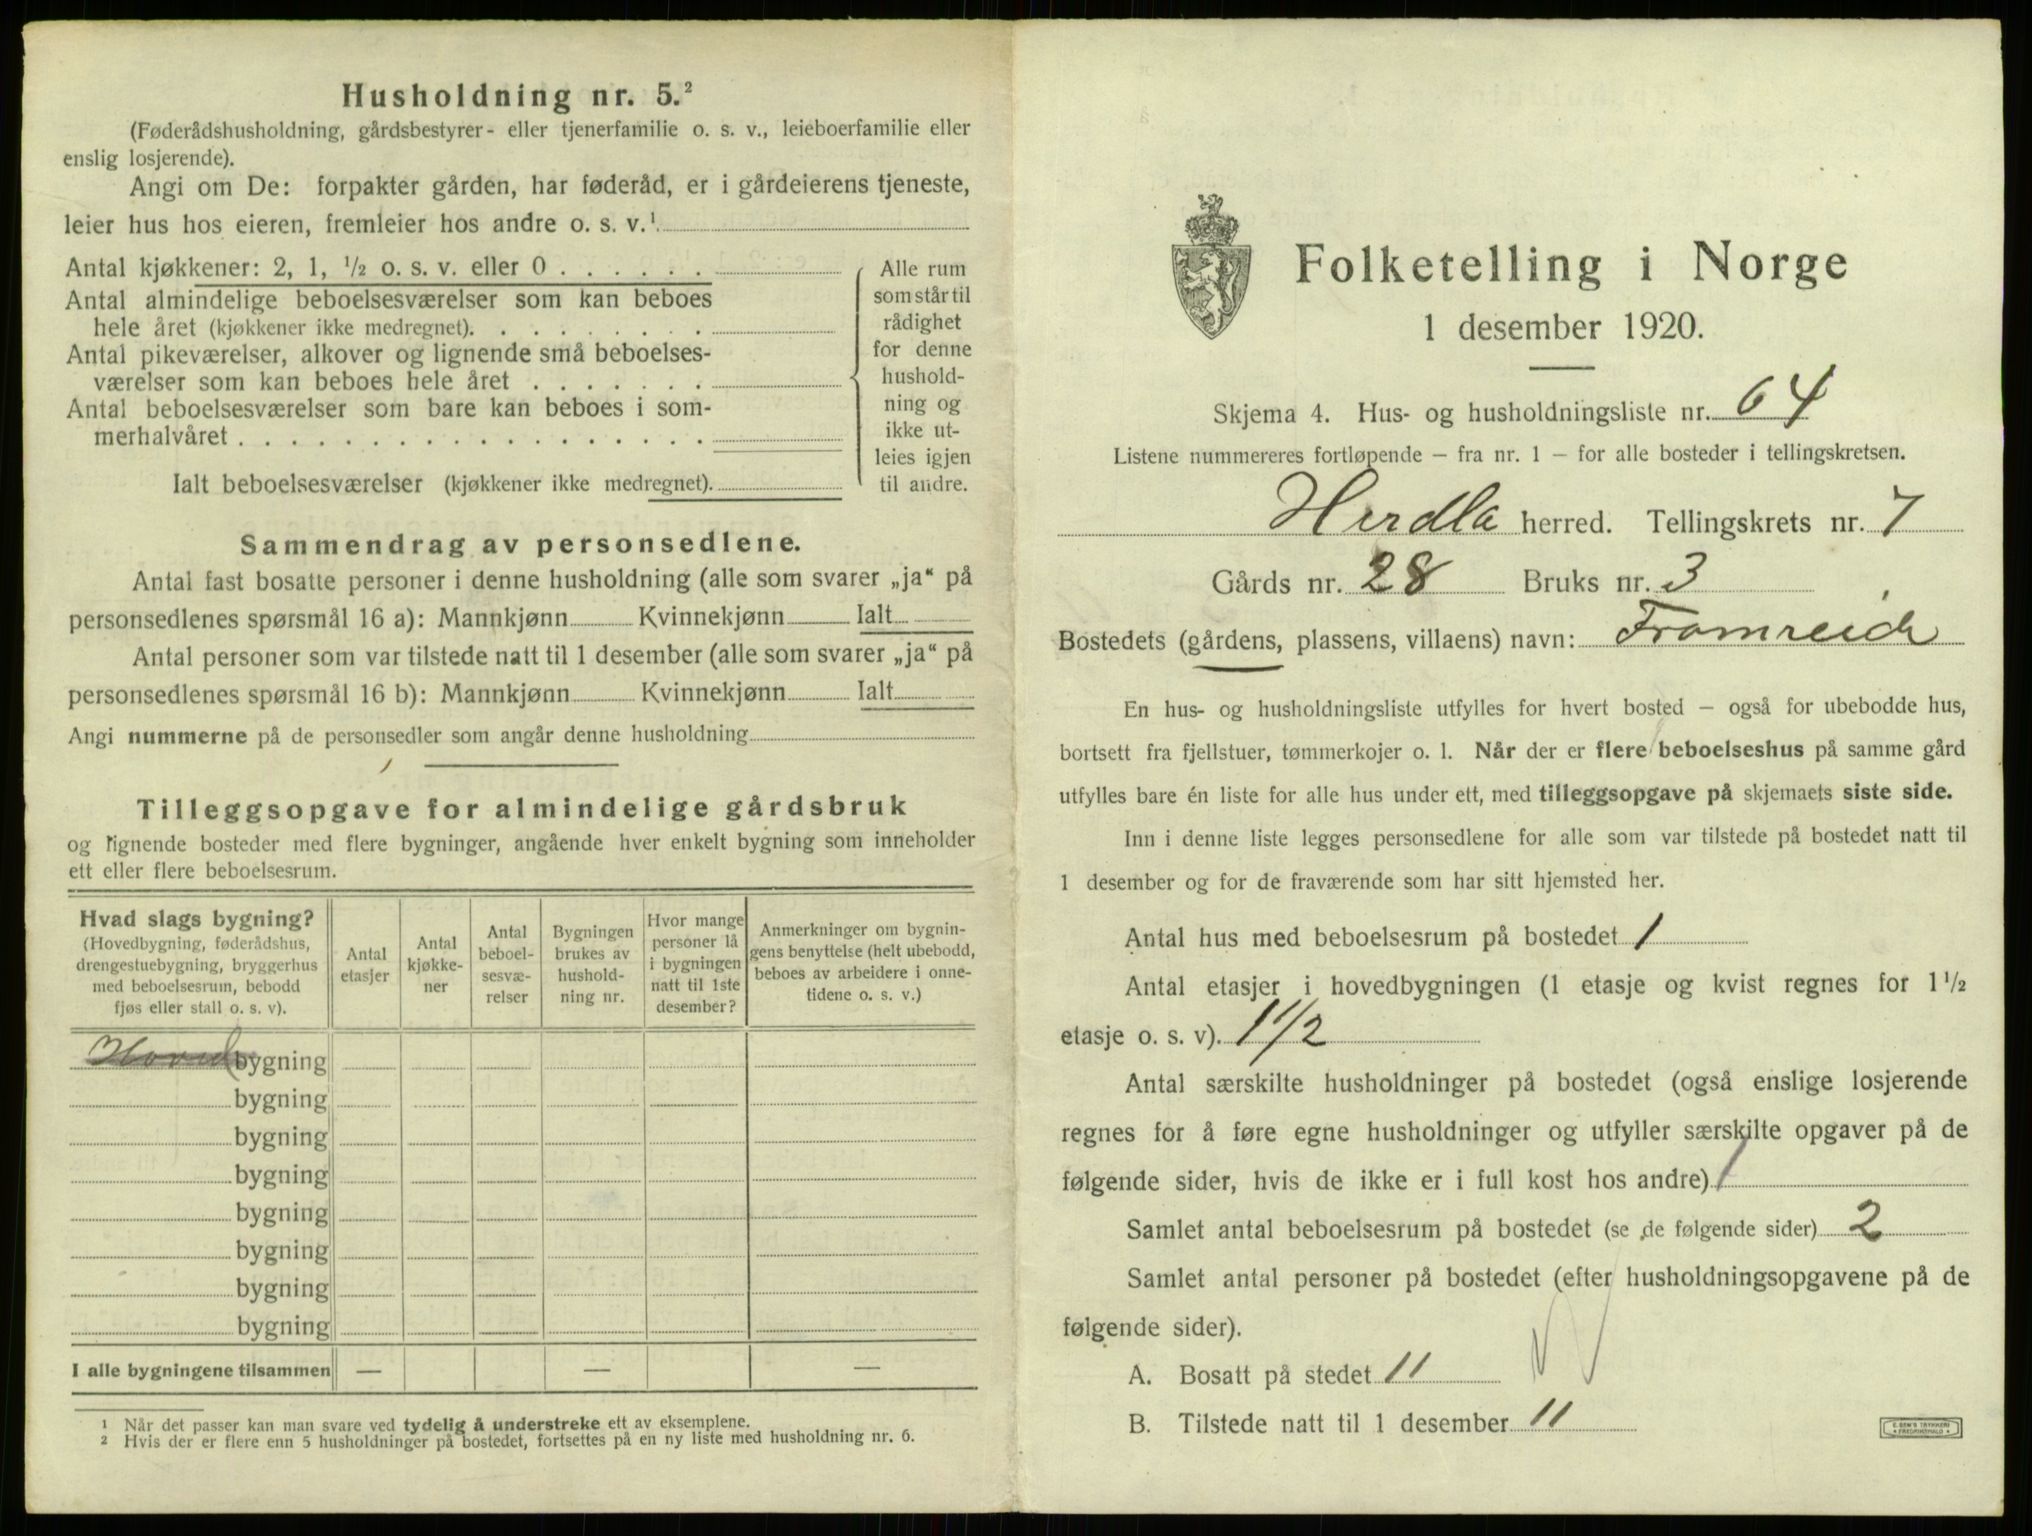 Husholdning nr. 5.²
(Føderådshusholdning, gårdsbestyrer- eller tjenerfamilie o. s. v., leieboerfamilie eller
enslig losjerende).
Angi om De: forpakter gården, har føderåd, er i gårdeierens tjeneste,
leier hus hos eieren, fremleier hos andre o. s. v.¹
Antal kjøkkener: 2, 1, ½ o. s. v. eller 0 . . . . . .
Antal almindelige beboelsesværelser som kan beboes
hele året (kjøkkener ikke medregnet). . . . . . . . .
Antal pikeværelser, alkover og lignende små beboelses-
værelser som kan beboes hele året . . . . . . .
Antal beboelsesværelser som bare kan beboes i som-
merhalvåret . . . . . . . . . . . . . . . . . .
Ialt beboelsesværelser (kjøkkener ikke medregnet).
Alle rum
som står til
rådighet
for denne
hushold-
ning og
ikke ut-
leies igjen
til andre.
Sammendrag av personsedlene.
Antal fast bosatte personer i denne husholdning (alle som svarer „ja“ på
personsedlenes spørsmål 16 a): Mannkjønn Kvinnekjønn Ialt
Antal personer som var tilstede natt til 1 desember (alle som svarer „ja“ på
personsedlenes spørsmål 16 b): Mannkjønn Kvinnekjønn Ialt
Angi nummerne på de personsedler som angår denne husholdning
Tilleggsopgave for almindelige gårdsbruk
og lignende bosteder med flere bygninger, angående hver enkelt bygning som inneholder
ett eller flere beboelsesrum.
Hvad slags bygning?
(Hovedbygning, føderådshus,
drengestuebygning, bryggerhus
med beboelsesrum, bebodd
fjøs eller stall o. s. v).
Antal
etasjer
Antal
kjøkke-
ner
Antal
beboel-
sesvæ-
relser
Bygningen
brukes av
hushold-
ning nr.
Hvor mange
personer lå
i bygningen
natt til 1ste
desember?
Anmerkninger om bygnin-
gens benyttelse (helt ubebodd,
beboes av arbeidere i onne-
tidene o. s. v.)
Hoved bygning
bygning
bygning
bygning
bygning
bygning
bygning
bygning
I alle bygningene tilsammen — — —
¹ Når det passer kan man svare ved tydelig å understreke ett av eksemplene.
² Hvis der er flere enn 5 husholdninger på bostedet, fortsettes på en ny liste med husholdning nr. 6.
Folketelling i Norge
1 desember 1920.
Skjema 4. Hus- og husholdningsliste nr. 64
Listene nummereres fortløpende – fra nr. 1 – for alle bosteder i tellingskretsen.
Herdla herred. Tellingskrets nr. 7
Gårds nr. 28 Bruks nr. 3
Bostedets (gårdens, plassens, villaens) navn: Fromreide
En hus- og husholdningsliste utfylles for hvert bosted – også for ubebodde hus,
bortsett fra fjellstuer, tømmerkojer o. l. Når der er flere beboelseshus på samme gård
utfylles bare én liste for alle hus under ett, med tilleggsopgave på skjemaets siste side.
Inn i denne liste legges personsedlene for alle som var tilstede på bostedet natt til
1 desember og for de fraværende som har sitt hjemsted her.
Antal hus med beboelsesrum på bostedet 1
Antal etasjer i hovedbygningen (1 etasje og kvist regnes for 1½
etasje o. s. v). 1 1/2
Antal særskilte husholdninger på bostedet (også enslige losjerende
regnes for å føre egne husholdninger og utfyller særskilte opgaver på de
følgende sider, hvis de ikke er i full kost hos andre) 1
Samlet antal beboelsesrum på bostedet (se de følgende sider) 2
Samlet antal personer på bostedet (efter husholdningsopgavene på de
følgende sider).
A. Bosatt på stedet 11
B. Tilstede natt til 1 desember 11
E. SEM'S TRYKKERI
FREDRIKSHALD